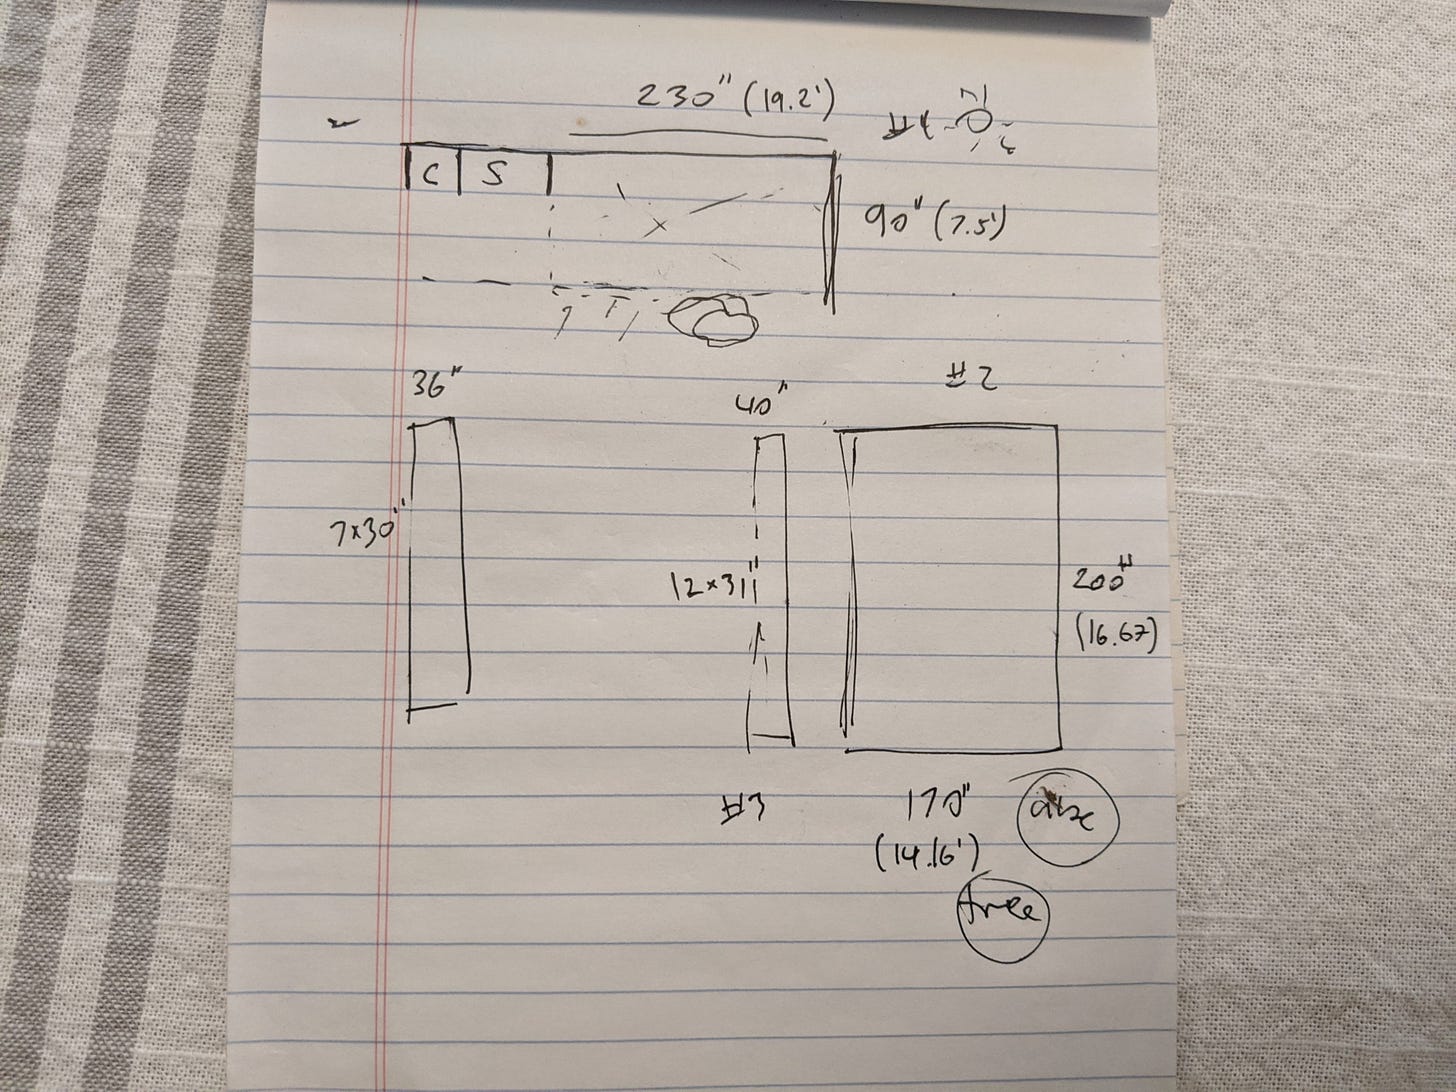 230" (19.2')
#1
C S
90" (7.5')
36"
40"
#2
7x30"
12x31"
200"
(16.67)
#3
170"
(14.16')
tree